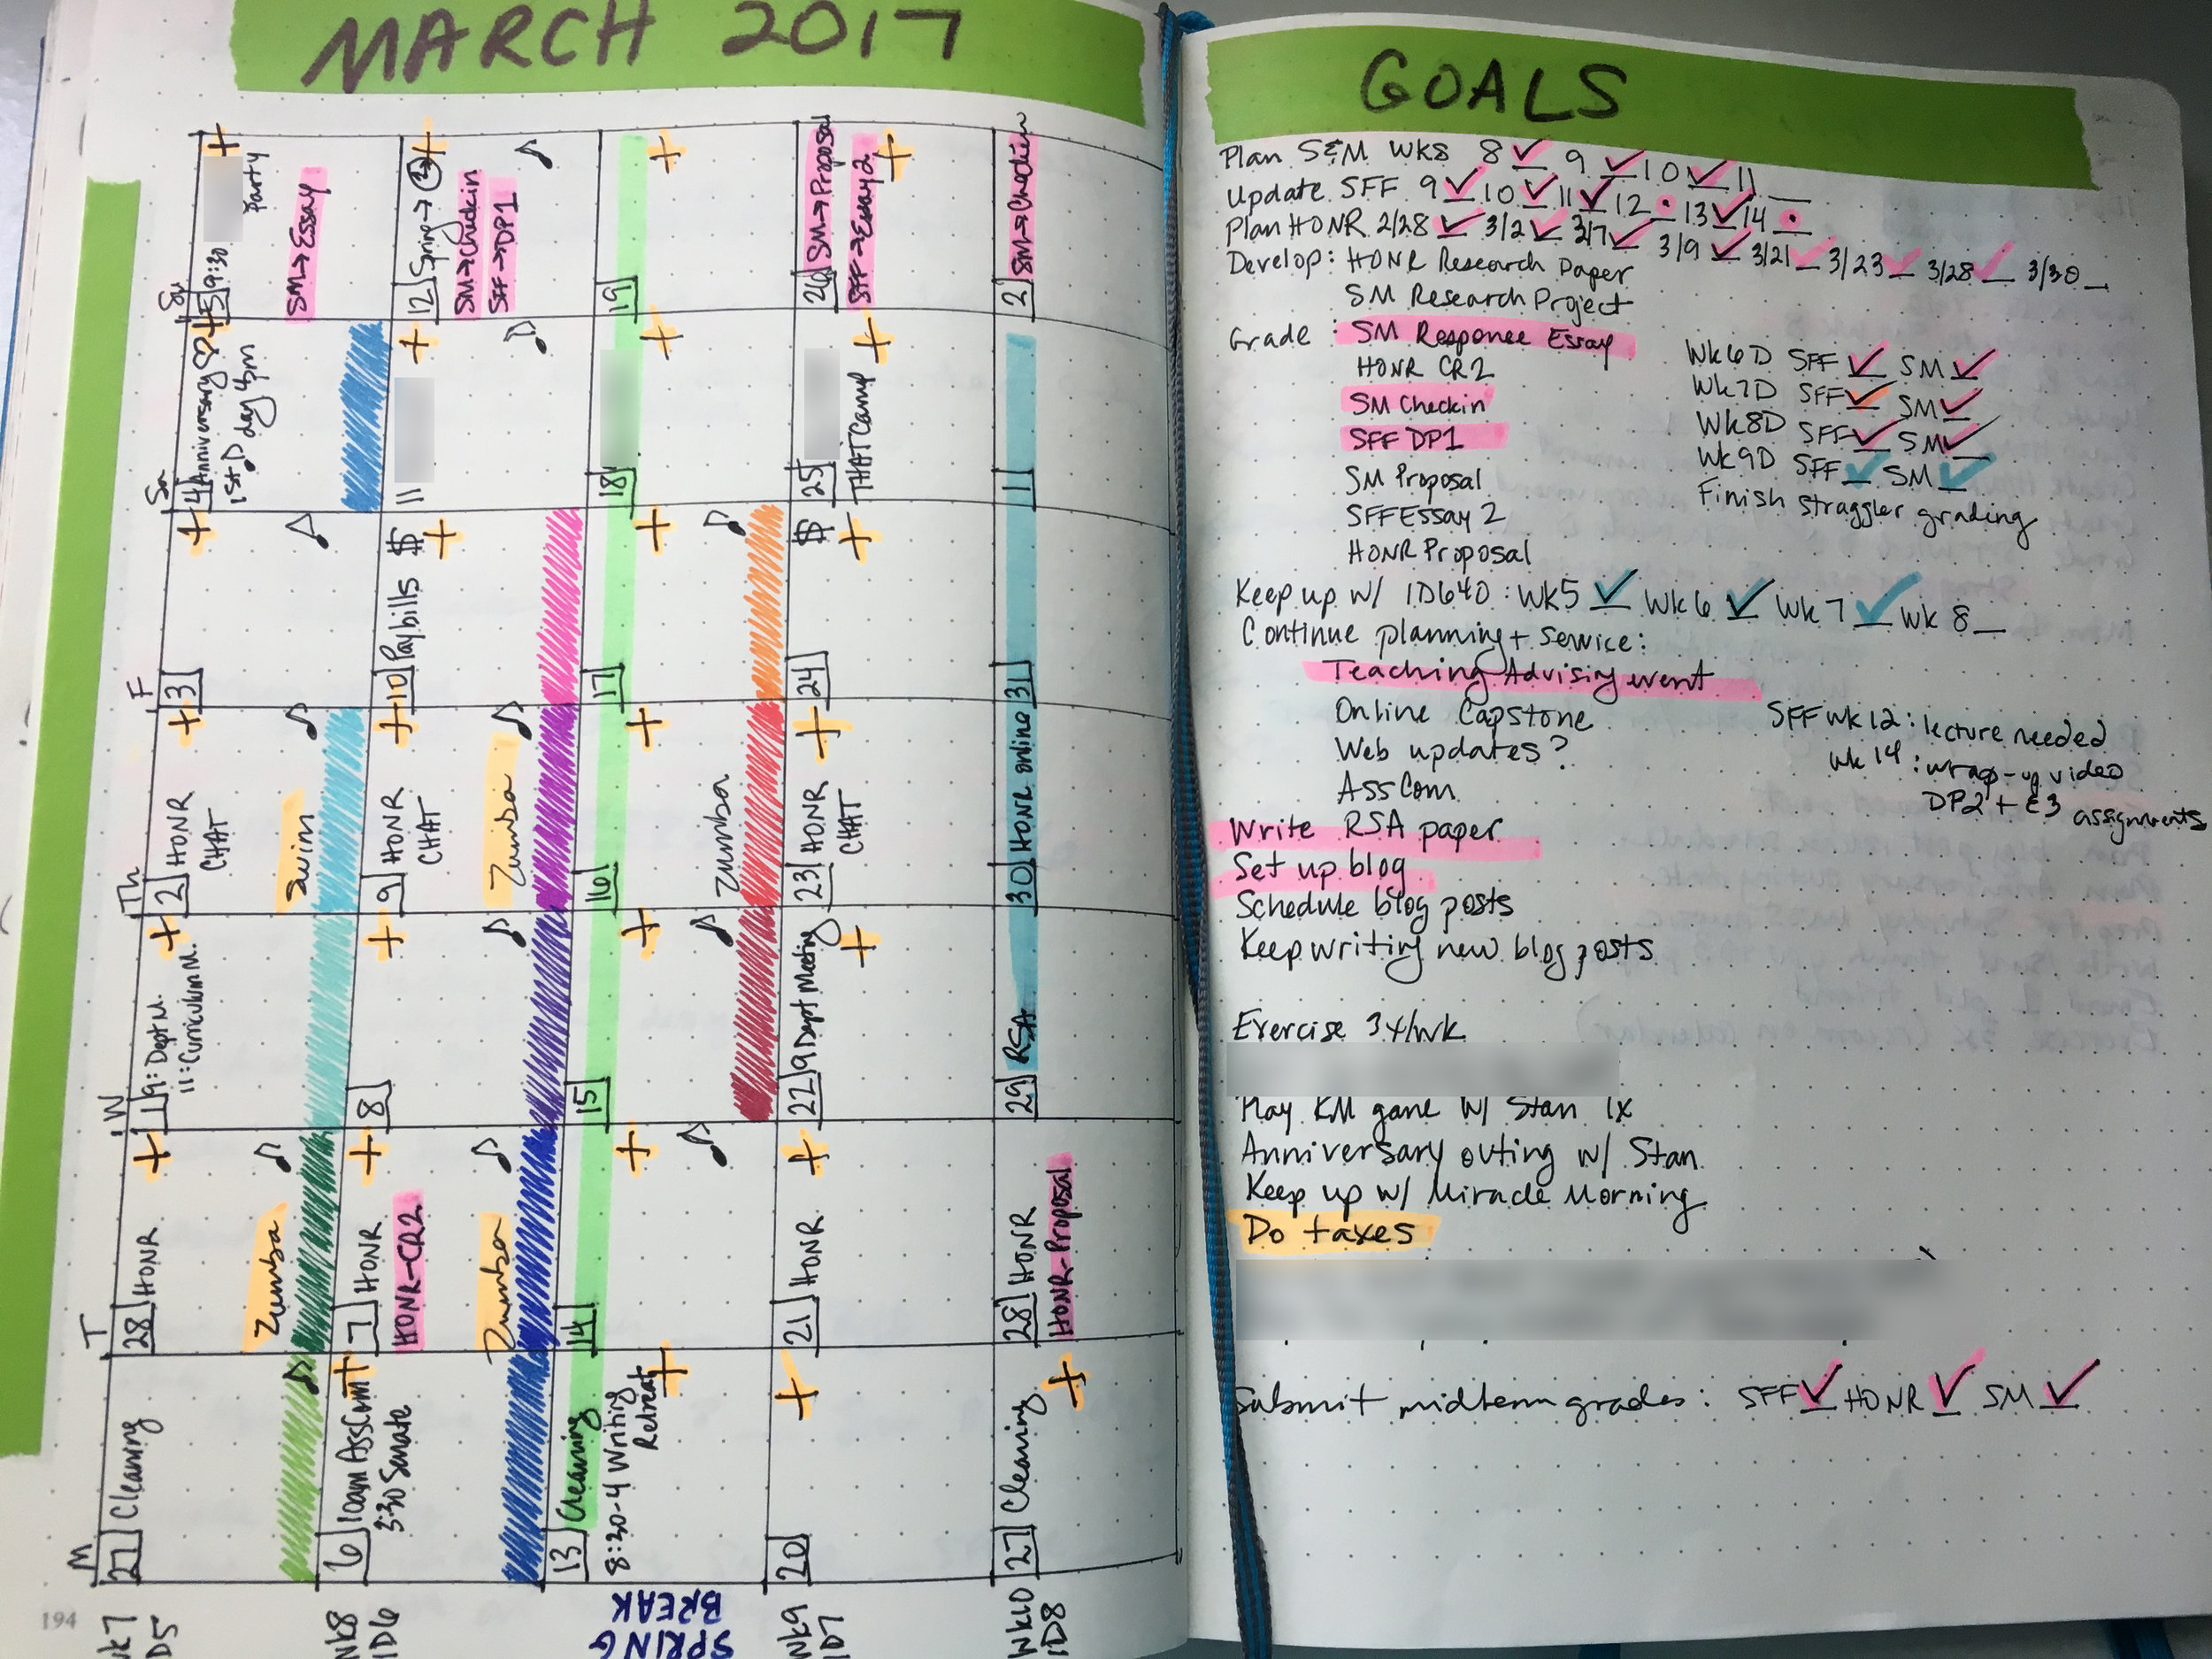 MARCH 2017
M
T
W
Th
F
Sa
Su
Wk7
ID5
27 Cleaning
28 HONR
Zumba
1 9: Dept M.
11: Curriculum M.
2 HONR
CHAT
Swim
3
4 Anniversary ♡
1st D day 4pm
5 9:30
Party
SM→Essay
Wk8
ID6
6 10am AssCom
3:30 Senate
7 HONR
HONR-CR2
Zumba
8
9 HONR
CHAT
Zumba
10 Pay bills $
11
12 Spring →
SM→Checkin
SFF→DP1
SPRING
BREAK
13 Cleaning
8:30-4 Writing
Retreat
14
15
16
Zumba
17
18
19
Wk9
ID7
20
21 HONR
22 9 Dept Meeting
23 HONR
CHAT
24 $
25
THATCamp
26 SM→Proposal
SFF→Essay 2
Wk10
ID8
27 Cleaning
28 HONR
HONR-Proposal
29 RSA
30 HONR online
31
1
2 SM→Checkin
194
GOALS
Plan S&M Wks 8 ✓ 9 ✓ 10 ✓ 11 _
Update SFF 9 ✓ 10 ✓ 11 ✓ 12 • 13 ✓ 14 •
Plan HONR 2/28 ✓ 3/2 ✓ 3/7 ✓ 3/9 ✓ 3/21 _ 3/23 _ 3/28 _ 3/30 _
Develop: HONR Research Paper
SM Research Project
Grade: SM Response Essay
HONR CR2
SM Checkin
SFF DP1
SM Proposal
SFF Essay 2
HONR Proposal
Wk6D SFF ✓ SM ✓
Wk7D SFF ✓ SM ✓
Wk8D SFF ✓ SM ✓
Wk9D SFF ✓ SM ✓
Finish straggler grading
Keep up w/ ID640: Wk5 ✓ Wk6 ✓ Wk7 ✓ Wk 8 _
Continue planning + service:
Teaching Advising event
Online Capstone
Web updates?
AssCom
SFF wk12: lecture needed
wk 14: wrap-up video
DP2 + E3 assignments
Write RSA paper
Set up blog
Schedule blog posts
Keep writing new blog posts
Exercise 3x/wk
Play KM game w/ Stan 1x
Anniversary outing w/ Stan
Keep up w/ Miracle Morning
Do taxes
Submit midterm grades: SFF ✓ HONR ✓ SM ✓